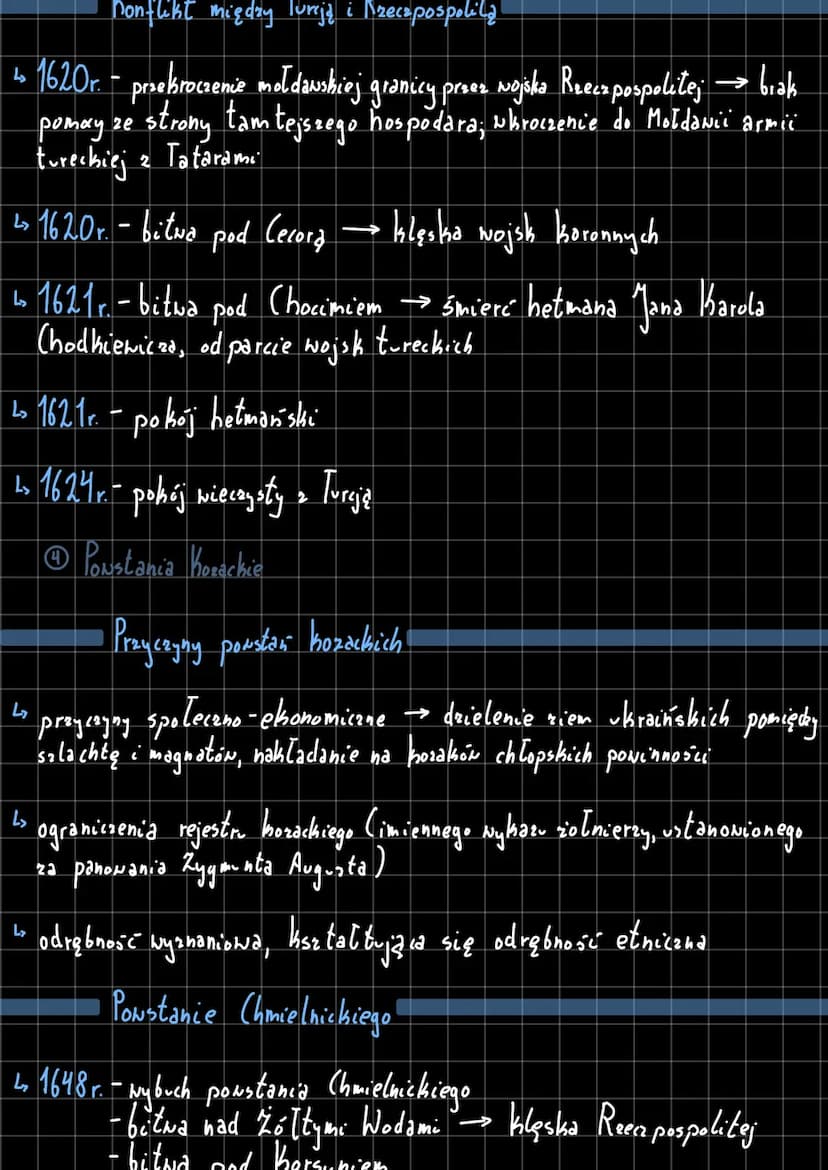 Konflikt między Turcją i Rzeczpospolitą
↳ 1620r. - przekroczenie mołdawskiej granicy przez wojska Rzeczpospolitej → brak
pomocy ze strony tamtejszego hospodara; wkroczenie do Mołdawii armii
tureckiej z Tatarami
↳ 1620r. - bitwa pod Cecorą → klęska wojsk koronnych
↳ 1621r. - bitwa pod Chocimiem → śmierć hetmana Jana Karola
Chodkiewicza, odparcie wojsk tureckich
↳ 1621r. - pokój hetmański
↳ 1624r. - pokój wieczysty z Turcją
④ Powstania Kozackie
Przyczyny powstań kozackich
↳ przyczyny społeczno-ekonomiczne → dzielenie ziem ukraińskich pomiędzy
szlachtę i magnatów, nakładanie na kozaków chłopskich powinności
↳ ograniczenia rejestru kozackiego (imiennego wykazu żołnierzy, ustanowionego
za panowania Zygmunta Augusta)
↳ odrębność wyznaniowa, kształtująca się odrębność etniczna
Powstanie Chmielnickiego
↳ 1648r. - wybuch powstania Chmielnickiego
- bitwa nad Żółtymi Wodami → klęska Rzeczpospolitej
- bitwa pod Korsuniem